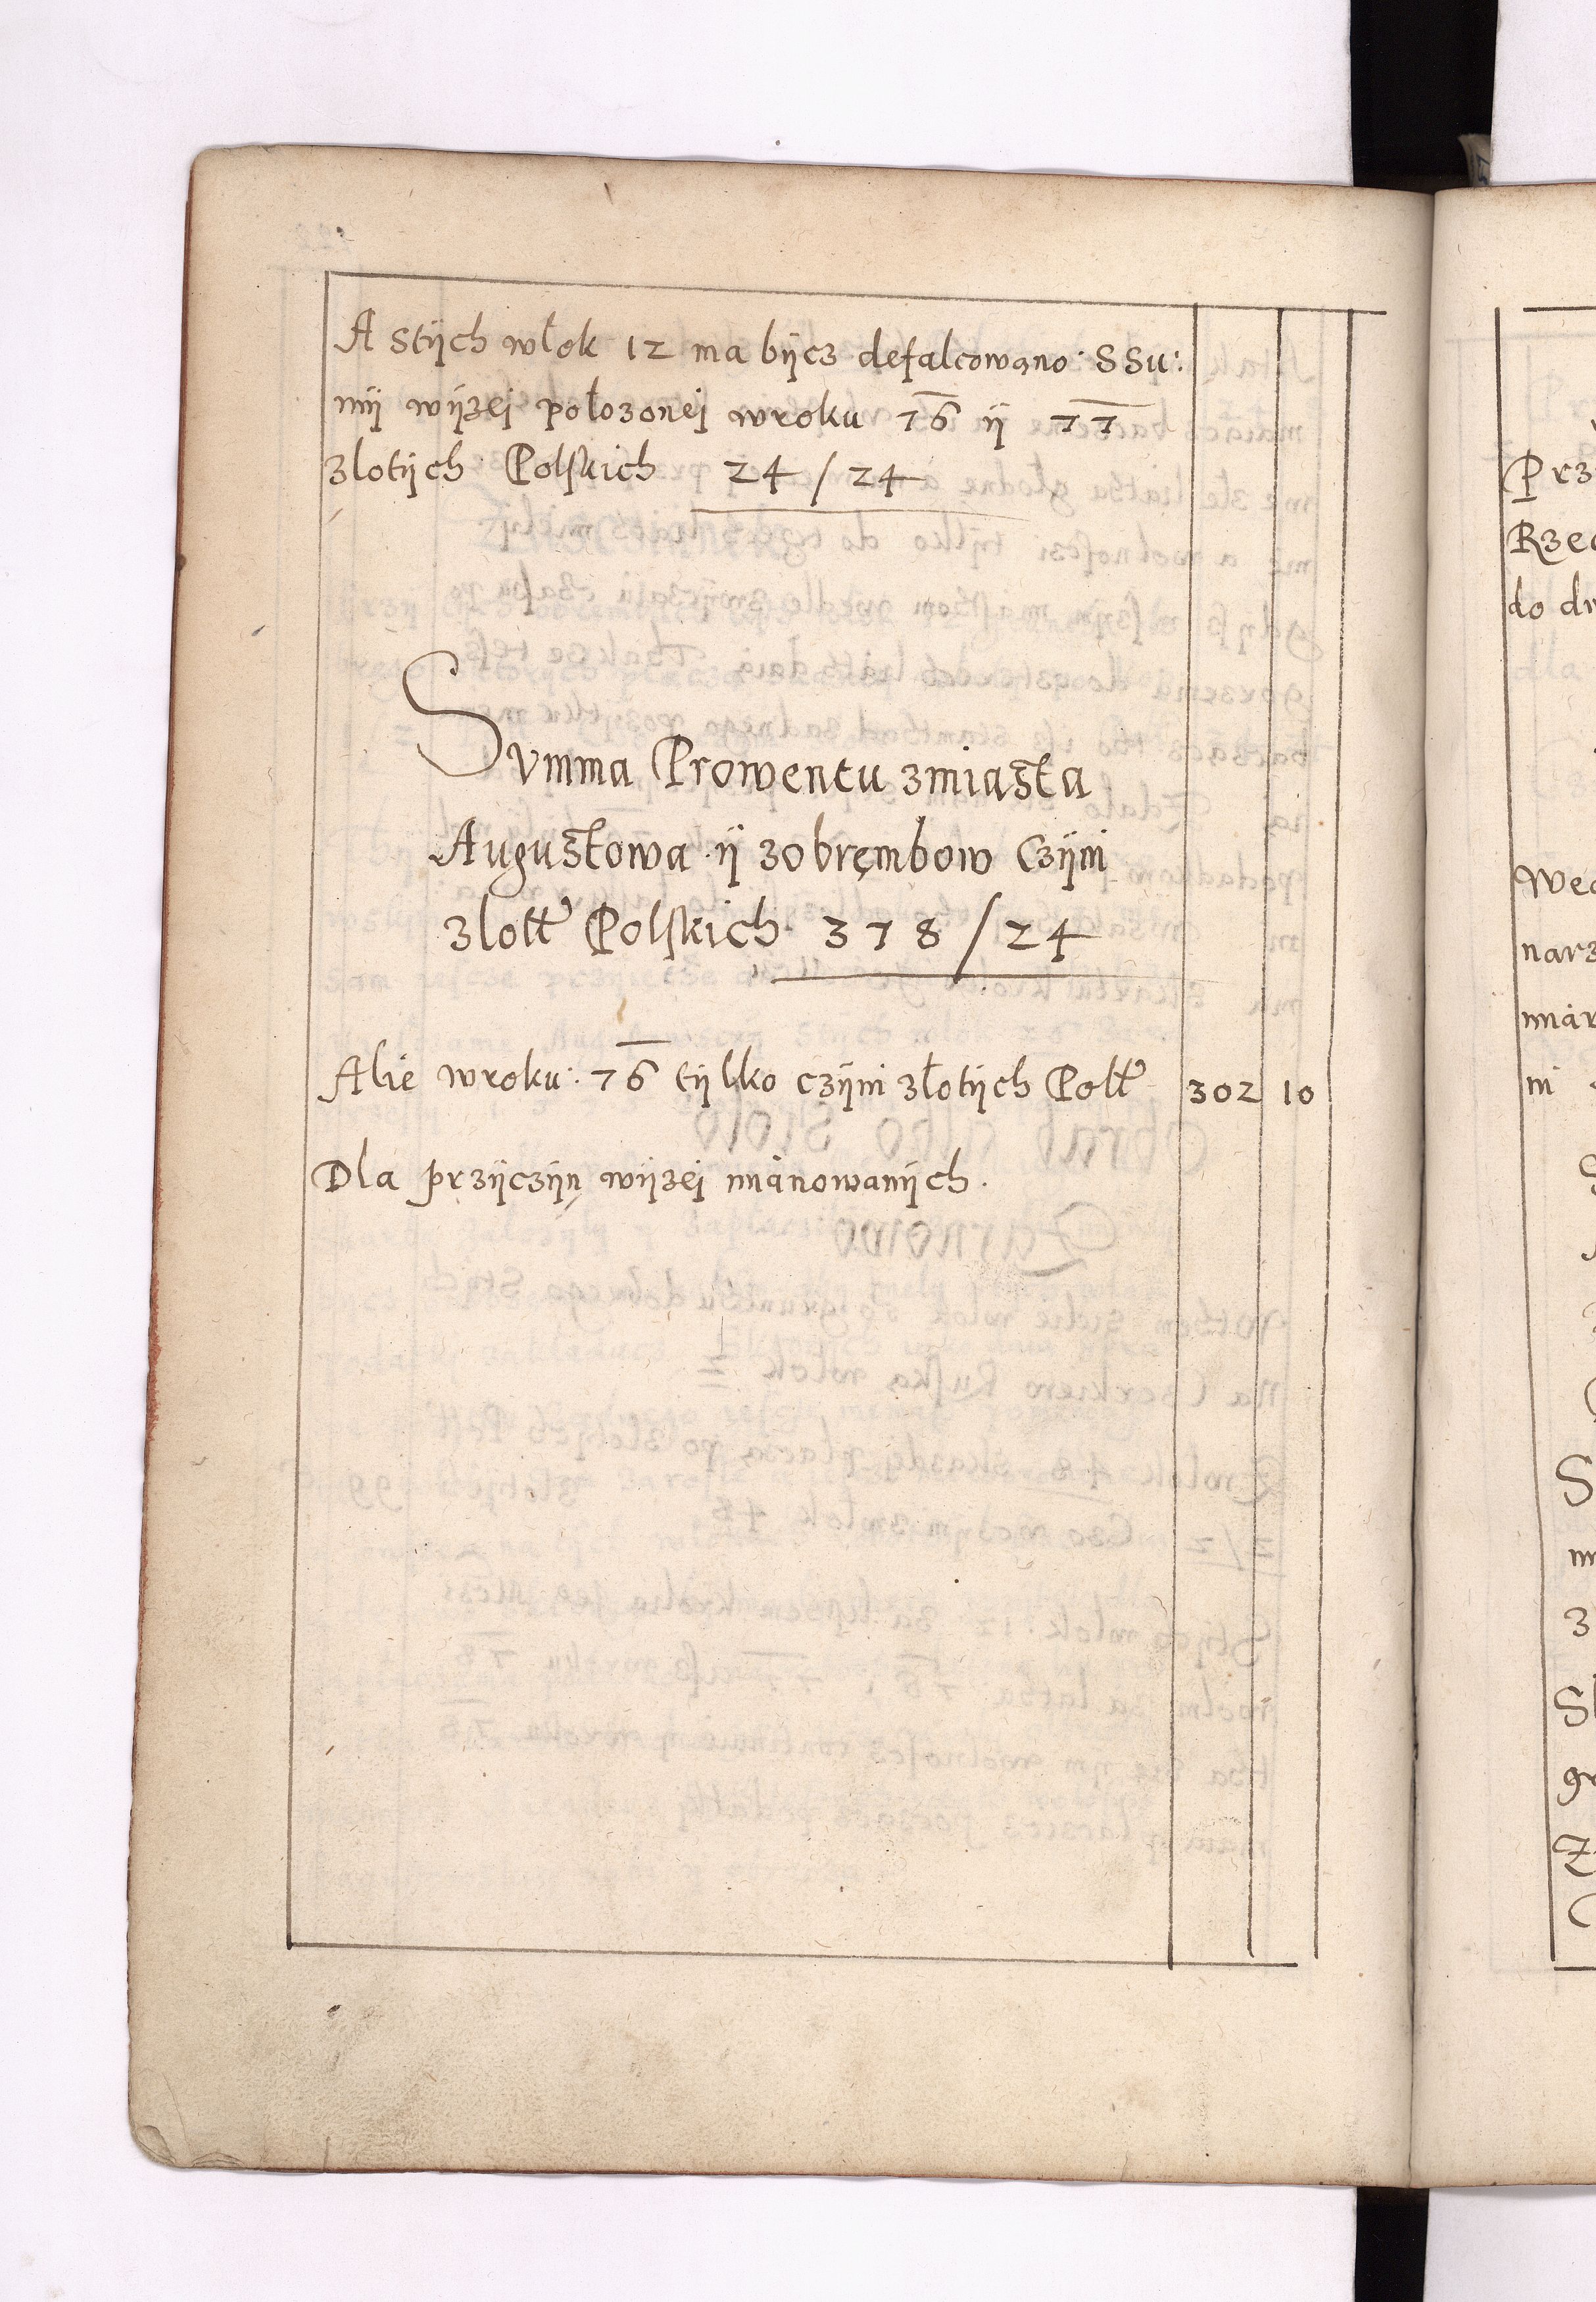 A stÿch włok 12 ma bÿcz defalcowano: SSu:
mÿ wÿzeÿ położonej w roku 76 ÿ 77
złotÿch Polskich 24 / 24
Summa Prowentu z miasta
Augustowa ÿ z obrębow Czÿni
złott Polskich 378 / 24
Alie w roku: 76 tÿlko czÿni złotÿch Poll 302 10
Dla przÿczÿn wÿzeÿ mianowanÿch.
Prz
Rzec
do dr
Wed
narz
miar
ni
S
m
3
Sl
gr
Z